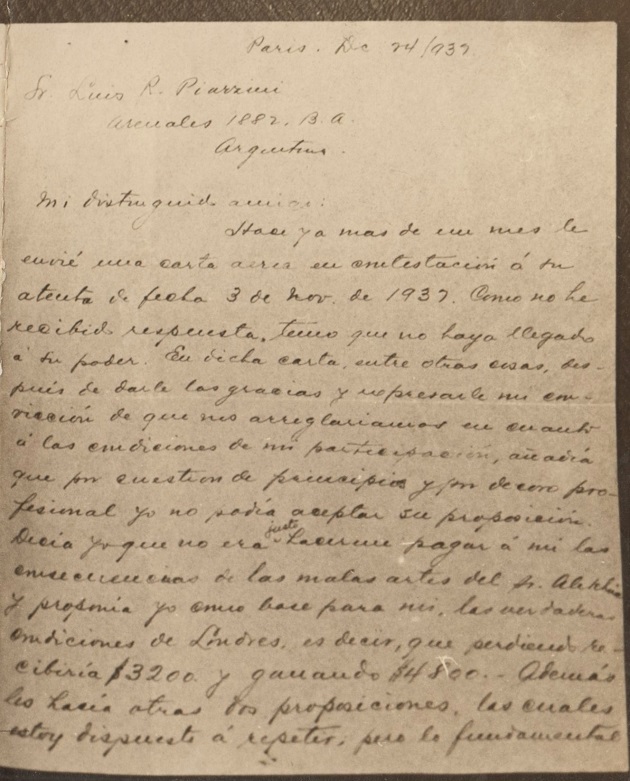 Paris. Dc 24/937
Sr. Luis R. Piazzini
Arenales 1882. B.A.
Argentina.
Mi distinguido amigo:
Hace ya mas de un mes le
envié una carta aerea en contestación á su
atenta de fecha 3 de Nov. de 1937. Como no he
recibido respuesta, temo que no haya llegado
á su poder. En dicha carta, entre otras cosas, des-
pués de darle las gracias y expresarle mi con-
vicción de que nos arreglariamos en cuanto
á las condiciones de mi participación, añadía
que por cuestion de principios y por decoro pro-
fesional yo no podía aceptar su proposición.
Decía yo que no era justo hacerme pagar á mi las
consecuencias de las malas artes del Sr. Alekhine
y proponia yo como base para mi, las verdaderas
condiciones de Lóndres, es decir, que perdiendo re-
cibiría $3200 y ganando $4800.- Además
les hacía otras dos proposiciones, las cuales
estoy dispuesto á repetir; pero lo fundamental